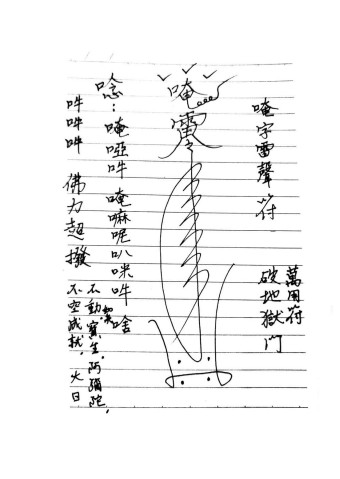 唵字雷聲符
萬用符
破地獄門
唵
雷
唸：唵啞吽 唵嘛呢叭咪吽
吽吽吽 佛力超撥
不動，寶生，阿彌陀，
不空成就，大日